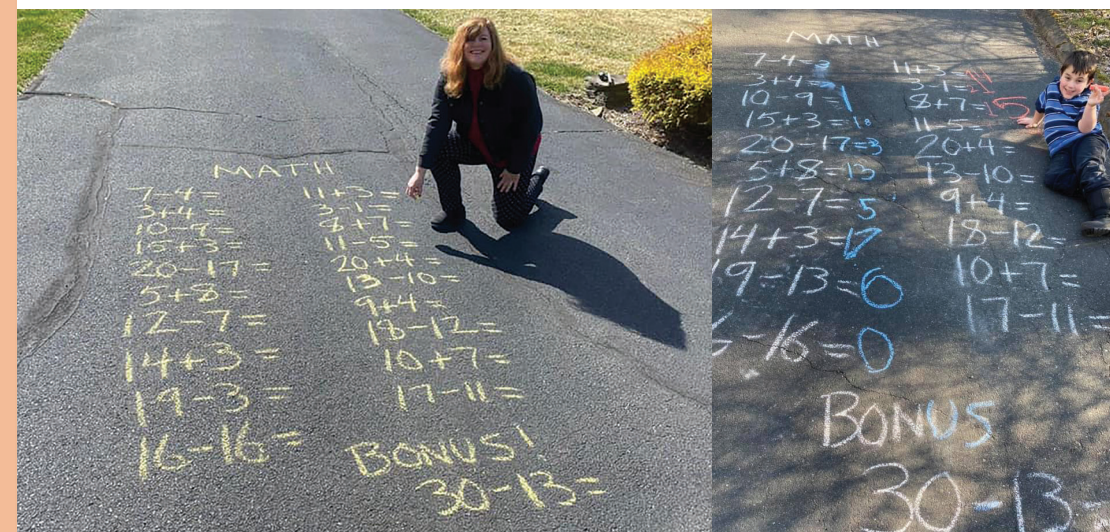 MATH
7-4=
3+4=
10-9=
15+3=
20-17=
5+8=
12-7=
14+3=
19-3=
16-16=
11+3=
3-1=
8+7=
11-5=
20+4=
13-10=
9+4=
18-12=
10+7=
17-11=
BONUS!
30-13=
MATH
7-4=3
3+4=
10-9=1
15+3=18
20-17=3
5+8=13
12-7=5
14+3=17
19-13=6
-16=0
11+3=
3-1=
8+7=15
11-5=
20+4=
13-10=
9+4=
18-12=
10+7=
17-11=
BONUS
30-13=